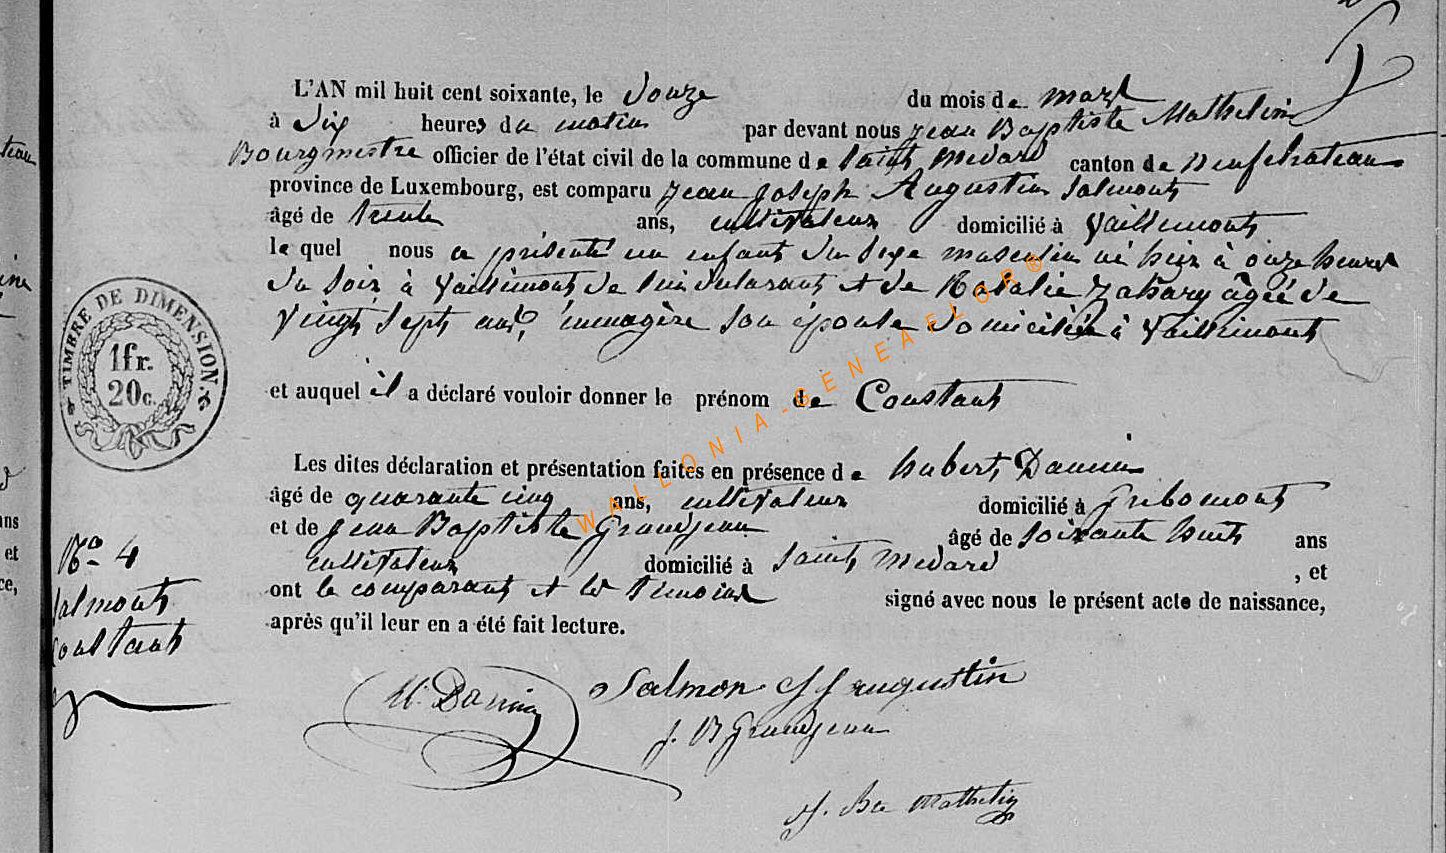 L'AN mil huit cent soixante, le Douze du mois de mars
à Dix heures du matin par devant nous Jean Baptiste Mathelin
Bourgmestre officier de l'état civil de la commune de Saint Medard canton de Neufchateau
province de Luxembourg, est comparu Jean Joseph Augustin Salmont
âgé de trente ans, cultivateur domicilié à Vaillimont
lequel nous a présenté un enfant du sexe masculin né hier à onze heures
du soir à Vaillimont de lui déclarant et de Natalie Zakary âgée de
Vingt Sept ans, ménagère son épouse domiciliée à Vaillimont
et auquel il a déclaré vouloir donner le prénom de Constant
Les dites déclaration et présentation faites en présence de hubert Damin
âgé de quarante cinq ans, cultivateur domicilié à Gribomont
et de Jean Baptiste Grandjean âgé de soixante huit ans
cultivateur domicilié à Saint Medard , et
ont le comparant et les témoins signé avec nous le présent acte de naissance,
après qu'il leur en a été fait lecture.
TIMBRE DE DIMENSION.
1fr.
20c.
No 4
Salmont
Constant
H. Damin
Salmon J J augustin
J. B Grandjean
J. Bte Mathelin
WALLONIA-GENEALOR®
teau
ine
ans
et
ce,